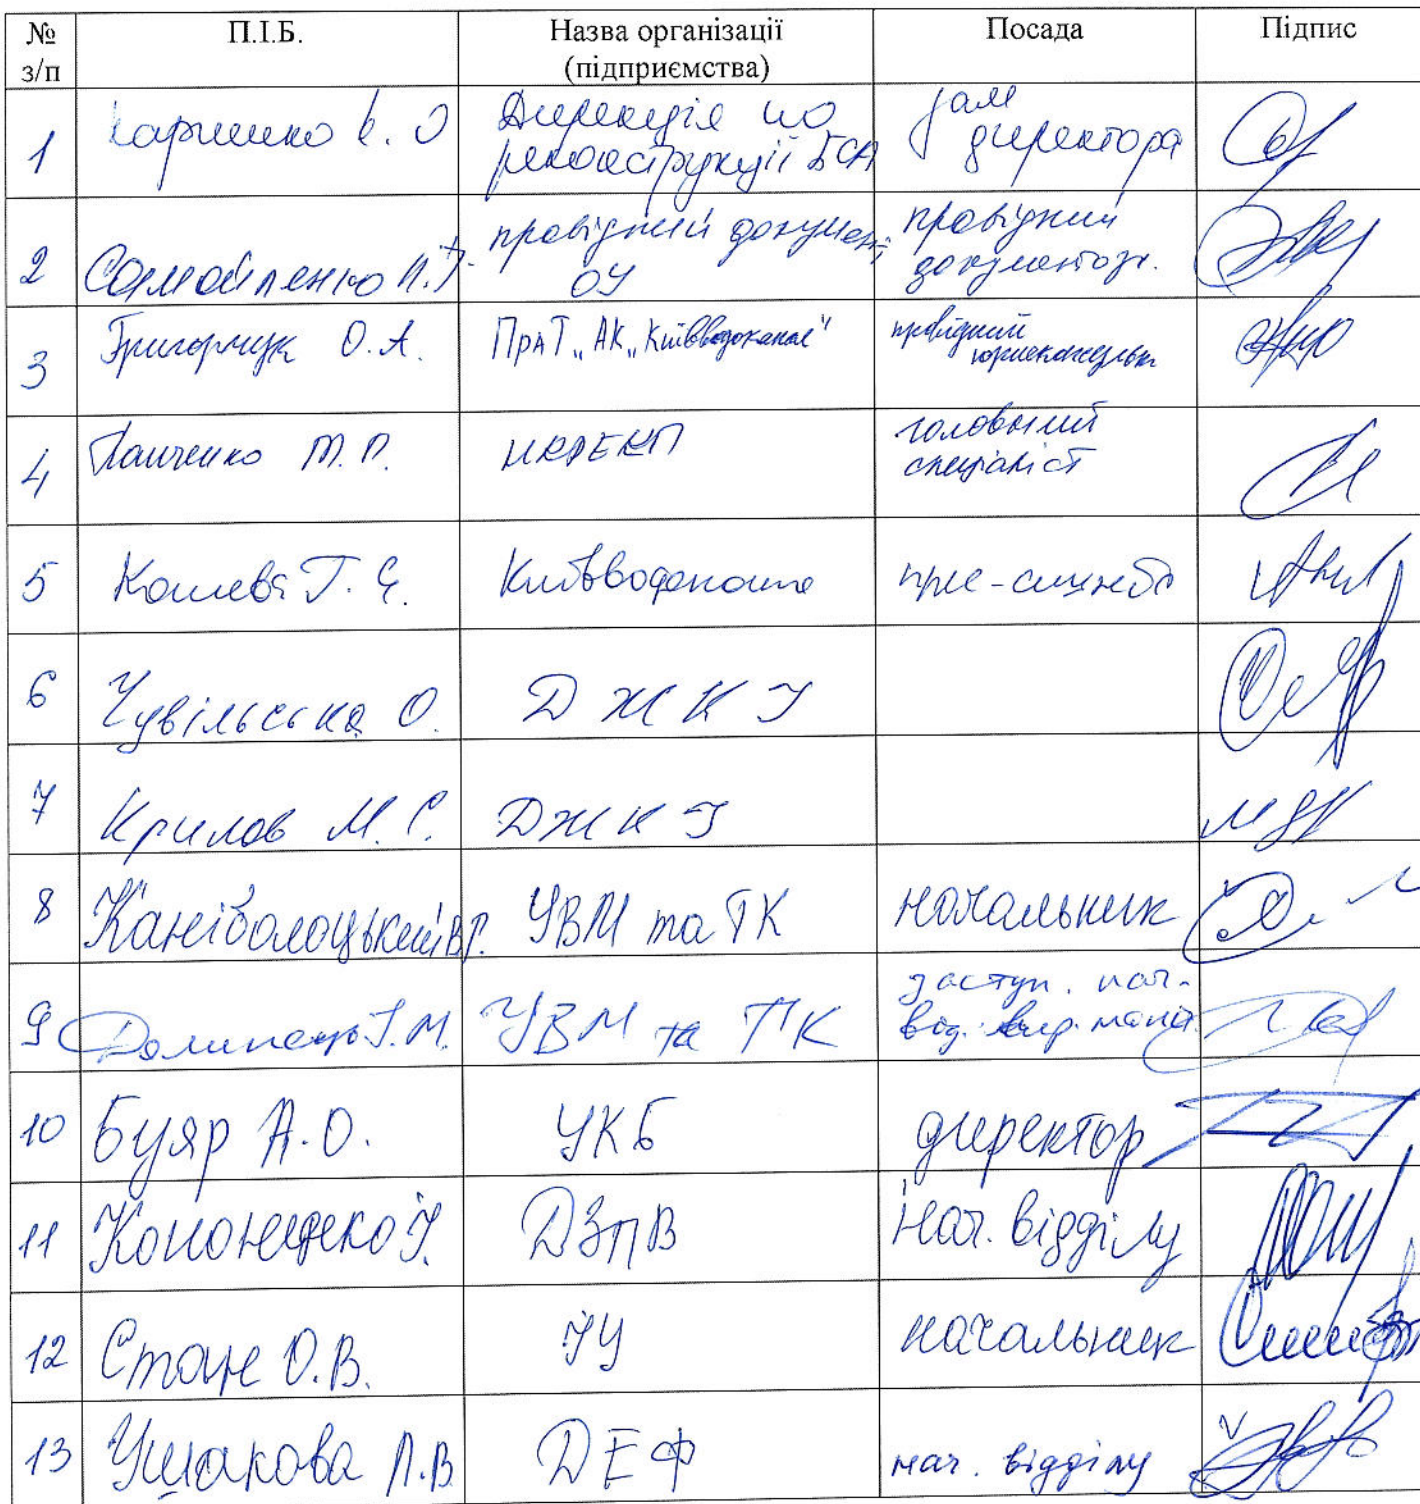 № з/п П.І.Б. Назва організації (підприємства) Посада Підпис
1 в. О Дирекція по реконструкції БСА Зам директора
2 Самойленко провідний документ ОУ провідний документозн.
3 Григорчук О.А. ПрАТ „АК „Київводоканал" провідний
4 Панченко М.П. НКРЕКП головний спеціаліст
5 Київводоканал прес-служба
6 Чувільська О. ДЖКІ
7 Крилов М.С. ДЖКІ
8 Каніболоцький В.Г. УВМ та ТК начальник
9 УВМ та ТК заступ. нач. від.
10 Буяр А.О. УКБ директор
11 ДЗПВ нач. відділу
12 О.В. начальник
13 Ушакова Л.В. ДЕФ нач. відділу